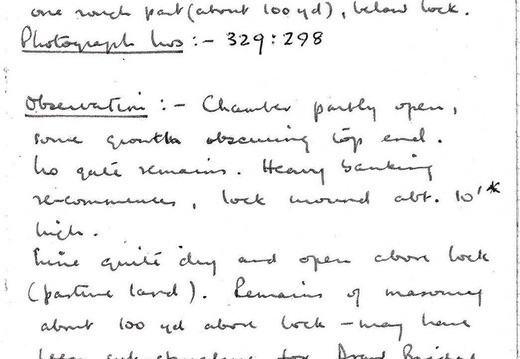 one rough part (about 100 yd), below lock.
Photograph Nos :- 329 : 298
Observation :- Chamber partly open,
some growth obscuring top end.
No gate remains. Heavy banking
re-commences, lock mound abt. 10'*
high.
Line quite dry and open above lock
(pasture land). Remains of masonry
about 100 yd above lock - may have
been for Draw Bridge